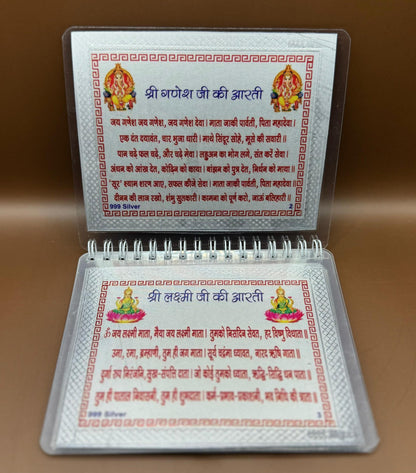 श्री गणेश जी की आरती
जय गणेश जय गणेश, जय गणेश देवा। माता जाकी पार्वती, पिता महादेवा।
एक दंत दयावंत, चार भुजा धारी। माथे सिंदूर सोहे, मूसे की सवारी॥
पान चढ़े फल चढ़े, और चढ़े मेवा। लड्डुअन का भोग लगे, संत करें सेवा।
अंधन को आंख देत, कोढ़िन को काया। बांझन को पुत्र देत, निर्धन को माया॥
'सूर' श्याम शरण आए, सफल कीजे सेवा। माता जाकी पार्वती, पिता महादेवा।
दीनन की लाज रखो, शंभु सुतकारी। कामना को पूर्ण करो, जाऊं बलिहारी॥
999 Silver
2
श्री लक्ष्मी जी की आरती
ॐ जय लक्ष्मी माता, मैया जय लक्ष्मी माता। तुमको निसदिन सेवत, हर विष्णु विधाता॥
उमा, रमा, ब्रह्माणी, तुम ही जग माता। सूर्य चंद्रमा ध्यावत, नारद ऋषि गाता॥
दुर्गा रूप निरंजनि, सुख-संपत्ति दाता। जो कोई तुमको ध्याता, ऋद्धि-सिद्धि धन पाता॥
तुम ही पाताल निवासनी, तुम ही शुभदाता। कर्म-प्रभाव-प्रकाशनी, भव निधि की
999 Silver
3